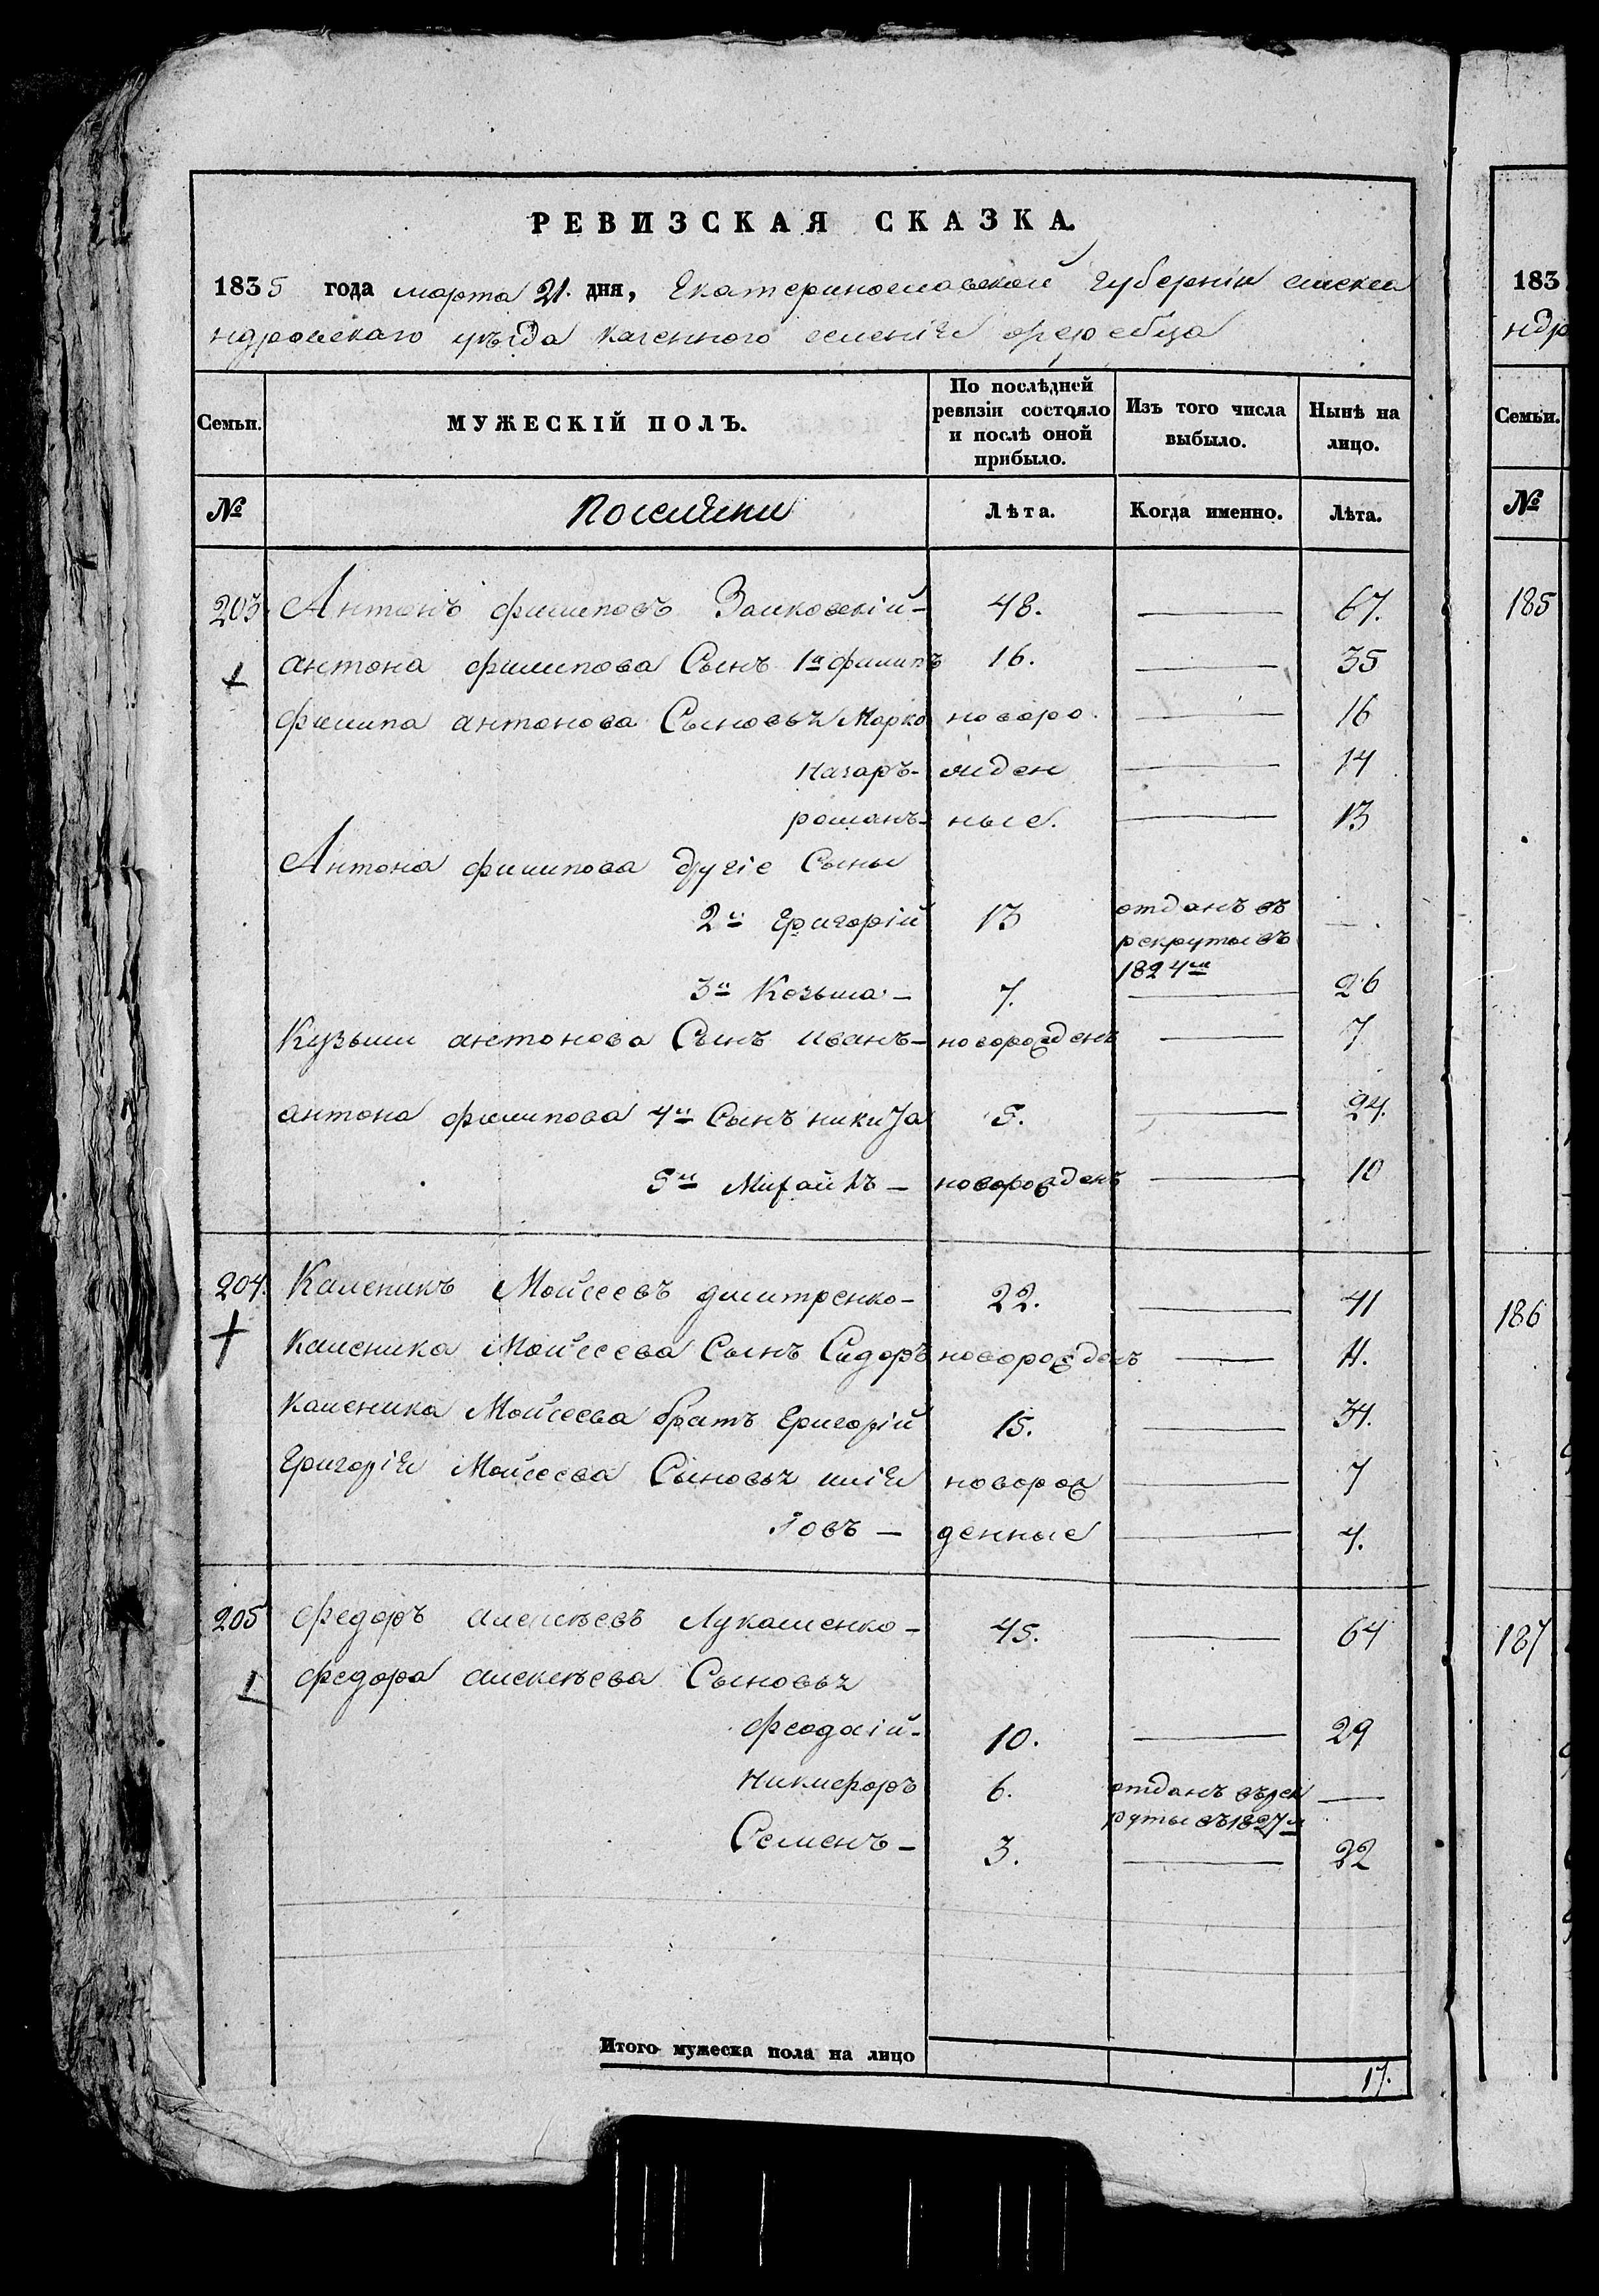 РЕВИЗСКАЯ СКАЗКА.
1835 года марта 21. дня, Екатеринославской Губерніи алекса
ндровскаго уѣзда казенного селенія
Семьи.
МУЖЕСКІЙ ПОЛЪ.
По послѣдней ревизіи состояло и послѣ оной прибыло.
Изъ того числа выбыло.
Нынѣ на лицо.
№
Поселяни
Лѣта.
Когда именно.
Лѣта.
203 Антонъ филиповъ 48. — 67.
антона филипова Сынъ 1й филипъ 16. — 35
филипа антонова Сыновья Марко новоро — 16
Назаръ- жден — 14
романъ- ные. — 13
Антона филипова другіе Сыны
2й Григорій 13 отданъ въ рекруты въ 1824м —
3й Козьма - 7. — 26
Кузьми антонова Сынъ иванъ- новорожденъ — 7
антона филипова 4й Сынъ никита 5. — 24.
5й Михайлъ - новорожденъ — 10
204. Каленикъ Мойсеевъ дмитренко- 22. — 41
Каленика Мойсеева Сынъ Сидоръ новорожденъ — 11.
Каленика Мойсеева братъ Григорій 15. — 34.
Григорія Мойсеева Сыновья илія новорож — 7
Іовъ - денные — 4.
205 федоръ алексѣевъ Лукашенко- 45. — 64
федора алексѣева Сыновья
феодосій- 10. — 29
Никифоръ 6. отданъ въ рек руты въ 1827м —
Семенъ - 3. — 22
Итого мужеска пола на лицо
17.
183
ндр
Семьи.
№
185
186
187